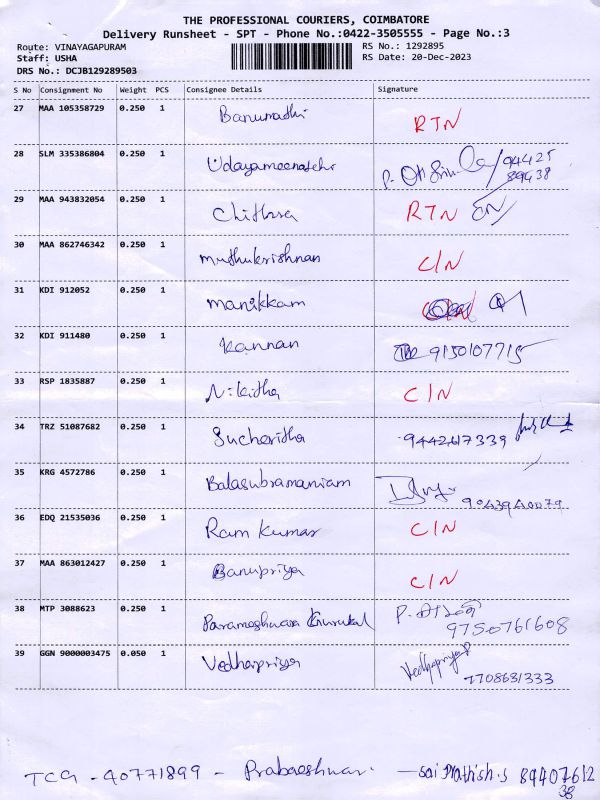 THE PROFESSIONAL COURIERS, COIMBATORE
Delivery Runsheet - SPT - Phone No.:0422-3505555 - Page No.:3
Route: VINAYAGAPURAM RS No.: 1292895
Staff: USHA RS Date: 20-Dec-2023
DRS No.: DCJB129289503
S No Consignment No Weight PCS Consignee Details Signature
27 MAA 105358729 0.250 1 Banumathi RTN
28 SLM 335386804 0.250 1 Udayameenatchi 94425
89438
29 MAA 943832054 0.250 1 Chithra RTN
30 MAA 862746342 0.250 1 Muthukrishnan C/N
31 KDI 912052 0.250 1 Manikkam
32 KDI 911480 0.250 1 Kannan 9150107715
33 RSP 1835887 0.250 1 Nikitha C/N
34 TRZ 51087682 0.250 1 Sucharitha 9442617339
35 KRG 4572786 0.250 1 Balasubramaniam 9043940079
36 EDQ 21535036 0.250 1 Ram Kumar C/N
37 MAA 863012427 0.250 1 Banupriya C/N
38 MTP 3088623 0.250 1 Parameshwara Gurukal
9750761608
39 GGN 9000003475 0.050 1 Vedhapriya Vedhapriya P
7708631333
TCG - 40771899 - Prabaeshwar. - Sai Prathish.S 89407612
38